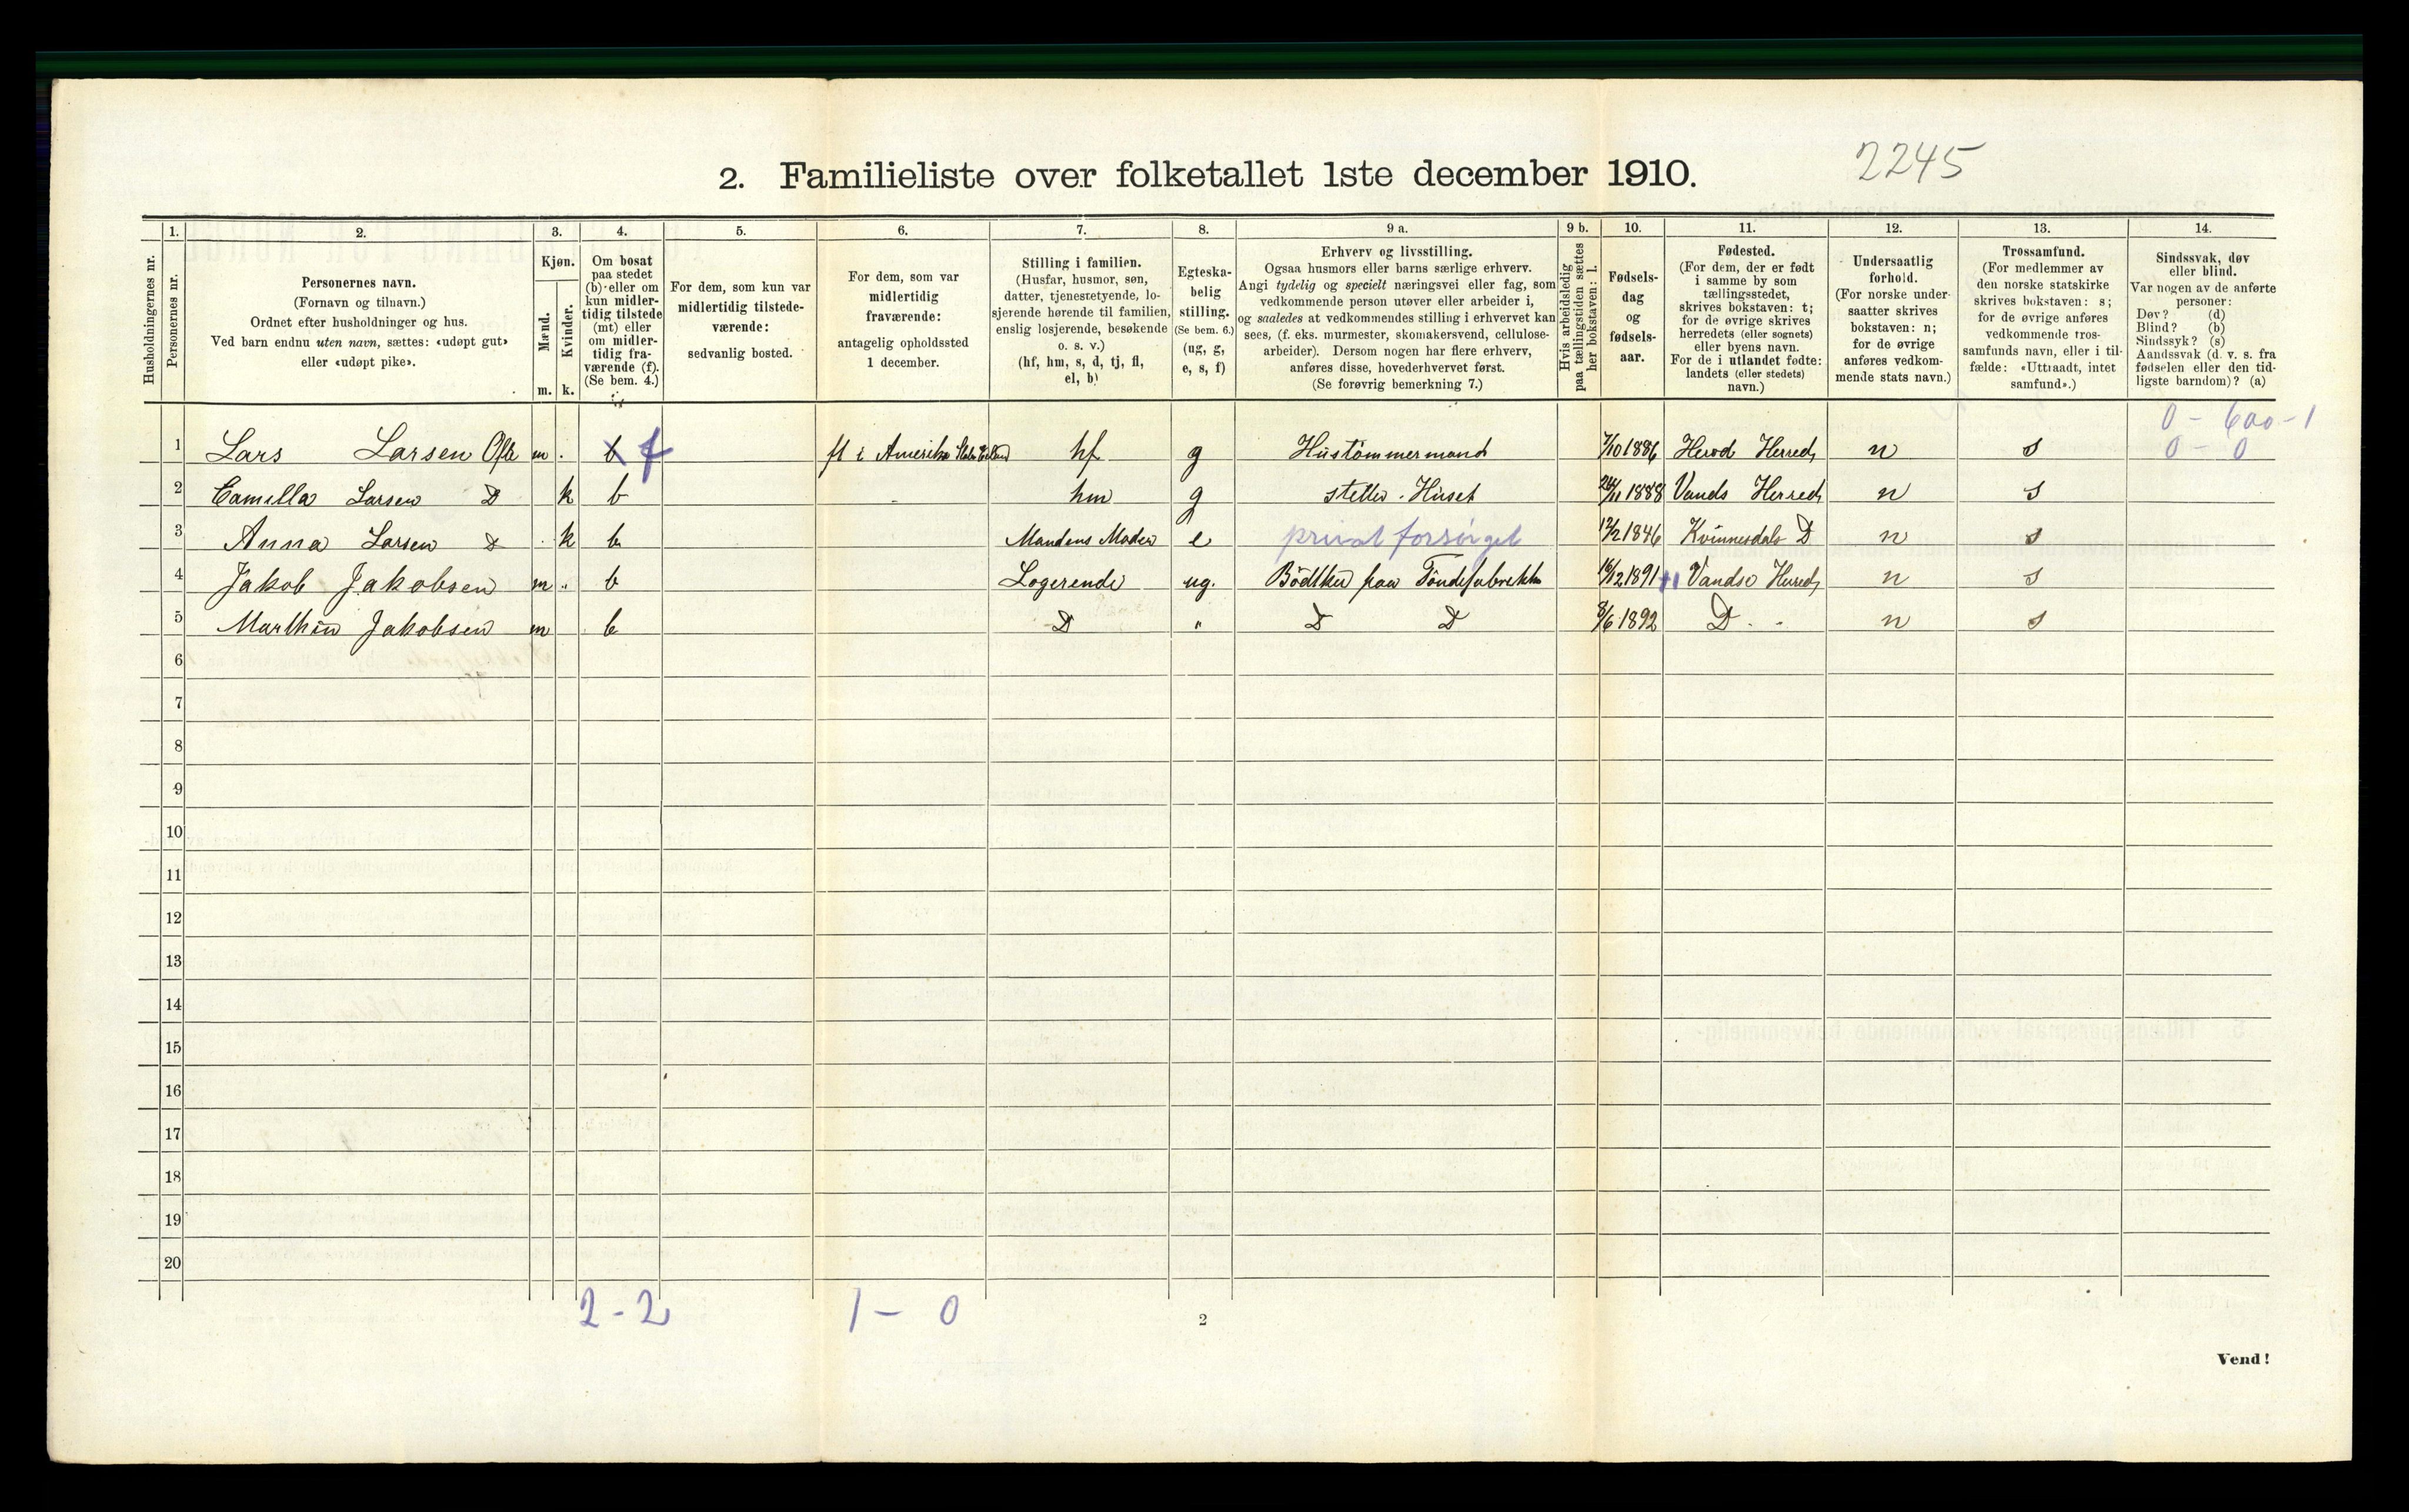 2. Familieliste over folketallet 1ste december 1910.
2245
Husholdningernes nr.
1.
Personernes nr.
2.
Personernes navn.
(Fornavn og tilnavn.)
Ordnet efter husholdninger og hus.
Ved barn endnu uten navn, sættes: «udøpt gut»
eller «udøpt pike».
3.
Kjøn.
Mænd.
Kvinder.
m. k.
4.
Om bosat
paa stedet
(b) eller om
kun midler-
tidig tilstede
(mt) eller
om midler-
tidig fra-
værende (f).
(Se bem. 4.)
5.
For dem, som kun var
midlertidig tilstede-
værende:
sedvanlig bosted.
6.
For dem, som var
midlertidig
fraværende:
antagelig opholdssted
1 december.
7.
Stilling i familien.
(Husfar, husmor, søn,
datter, tjenestetyende, lo-
sjerende hørende til familien,
enslig losjerende, besøkende
o. s. v.)
(hf, hm, s, d, tj, fl,
el, b)
8.
Egteska-
belig
stilling.
(Se bem. 6.)
(ug, g,
e, s, f)
9 a.
Erhverv og livsstilling.
Ogsaa husmors eller barns særlige erhverv.
Angi tydelig og specielt næringsvei eller fag, som
vedkommende person utøver eller arbeider i,
og saaledes at vedkommendes stilling i erhvervet kan
sees, (f. eks. murmester, skomakersvend, cellulose-
arbeider). Dersom nogen har flere erhverv,
anføres disse, hovederhvervet først.
(Se forøvrig bemerkning 7.)
9 b.
Hvis arbeidsledig
paa tællingstiden sættes
her bokstaven: l.
10.
Fødsels-
dag
og
fødsels-
aar.
11.
Fødested.
(For dem, der er født
i samme by som
tællingsstedet,
skrives bokstaven: t;
for de øvrige skrives
herredets (eller sognets)
eller byens navn.
For de i utlandet fødte:
landets (eller stedets)
navn.)
12.
Undersaatlig
forhold.
(For norske under-
saatter skrives
bokstaven: n;
for de øvrige
anføres vedkom-
mende stats navn.)
13.
Trossamfund.
(For medlemmer av
den norske statskirke
skrives bokstaven: s;
for de øvrige anføres
vedkommende tros-
samfunds navn, eller i til-
fælde: «Uttraadt, intet
samfund».)
14.
Sindssvak, døv
eller blind.
Var nogen av de anførte
personer:
Døv? (d)
Blind? (b)
Sindssyk? (s)
Aandssvak (d. v. s. fra
fødselen eller den tid-
ligste barndom)? (a)
0 - 600 - 1
0 - 0
1 Lars Larsen m b f i Amerika hf g Hustömmermand 7/10 1886 Herred n s
2 Camilla Larsen D k b hm g steller Huset 1888 Vands Herred n s
3 Anna Larsen D k b Mandens Moder e privat forsörget 12/2 1846 Kvinnesdals D n s
4 Jakob Jakobsen m b Logerende ug. Bödtker paa Töndefabrikk 16/12 1891 Vandse Herred n s
5 Marthin Jakobsen m b D " D D 8/6 1892 D n s
6
7
8
9
10
11
12
13
14
15
16
17
18
19
20
2 - 2 1 - 0
2
Vend!